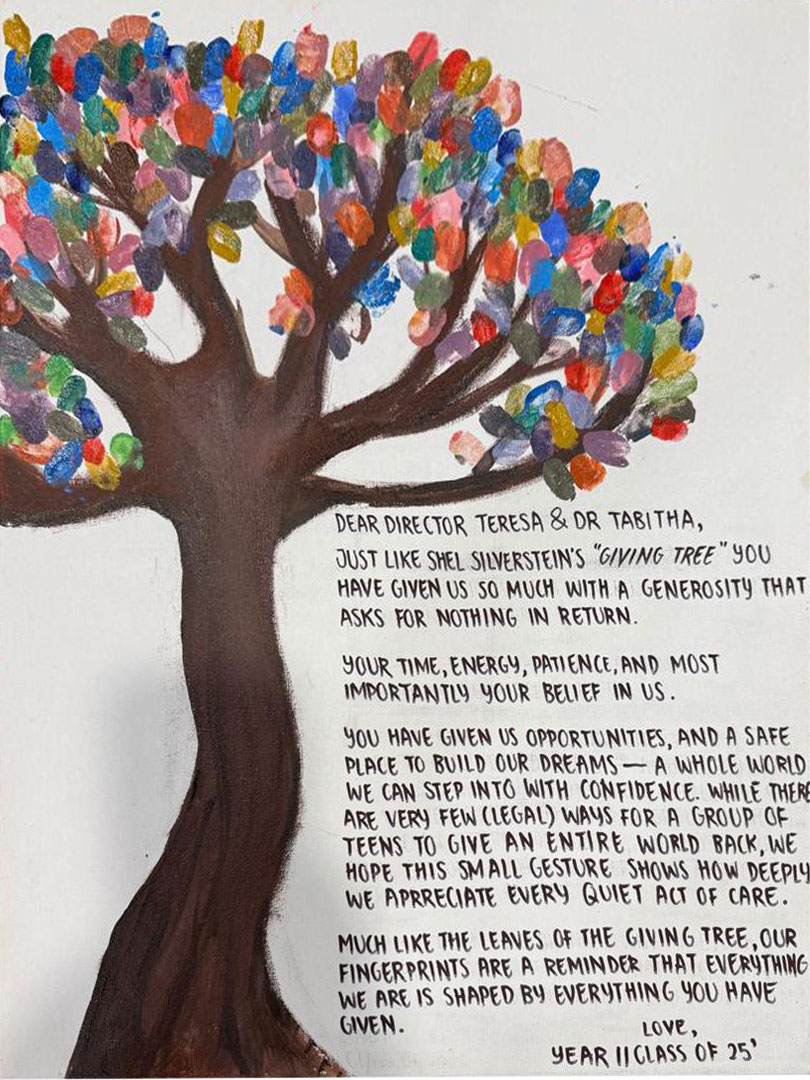 DEAR DIRECTOR TERESA & DR TABITHA,
JUST LIKE SHEL SILVERSTEIN'S "GIVING TREE" YOU
HAVE GIVEN US SO MUCH WITH A GENEROSITY THAT
ASKS FOR NOTHING IN RETURN.
YOUR TIME, ENERGY, PATIENCE, AND MOST
IMPORTANTLY YOUR BELIEF IN US.
YOU HAVE GIVEN US OPPORTUNITIES, AND A SAFE
PLACE TO BUILD OUR DREAMS — A WHOLE WORLD
WE CAN STEP INTO WITH CONFIDENCE. WHILE THERE
ARE VERY FEW (LEGAL) WAYS FOR A GROUP OF
TEENS TO GIVE AN ENTIRE WORLD BACK, WE
HOPE THIS SMALL GESTURE SHOWS HOW DEEPLY
WE APRRECIATE EVERY QUIET ACT OF CARE.
MUCH LIKE THE LEAVES OF THE GIVING TREE, OUR
FINGERPRINTS ARE A REMINDER THAT EVERYTHING
WE ARE IS SHAPED BY EVERYTHING YOU HAVE
GIVEN.
LOVE,
YEAR 11 CLASS OF 25'